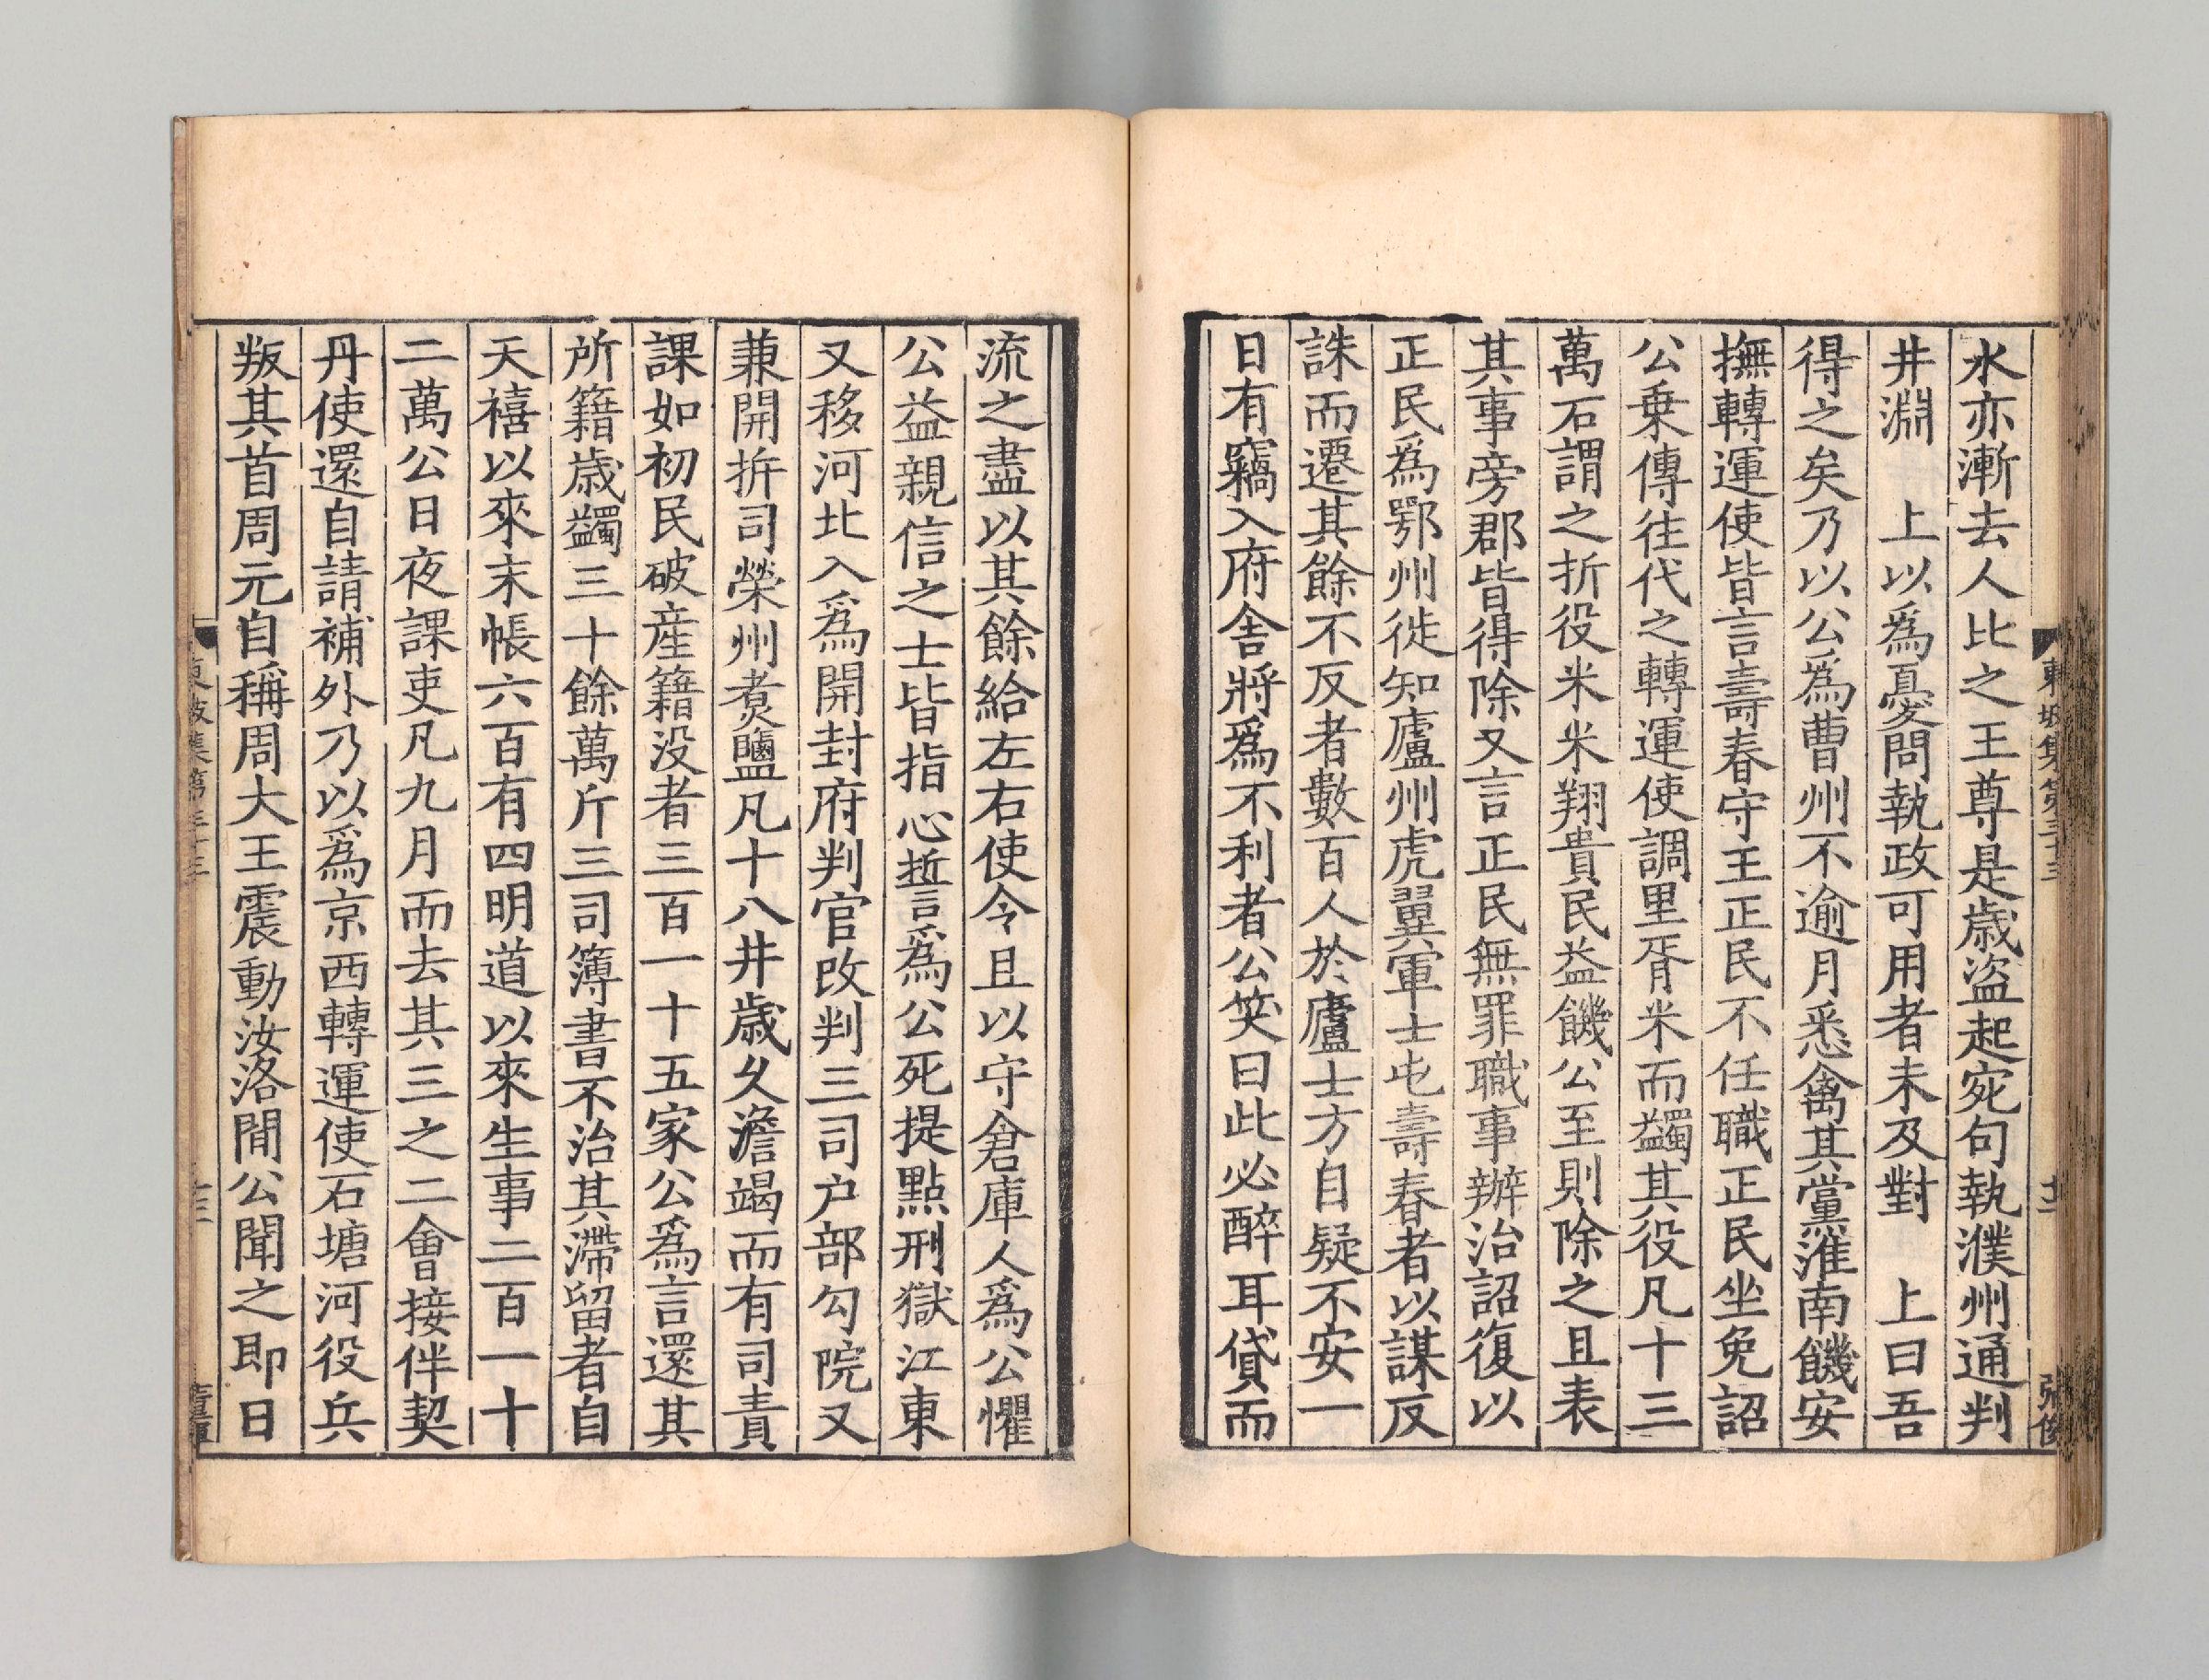 水亦漸去人比之王尊是歳盜起宛句執濮州通判
井淵　上以爲憂問執政可用者未及對　上曰吾
得之矣乃以公爲曹州不逾月悉禽其黨淮南饑安
撫轉運使皆言壽春守王正民不任職正民坐免詔
公乗傳往代之轉運使調里胥米而蠲其役凡十三
萬石謂之折役米米翔貴民益饑公至則除之且表
其事旁郡皆得除又言正民無罪職事辦治詔復以
正民爲鄂州徙知廬州虎翼軍士屯壽春者以謀反
誅而遷其餘不反者數百人於廬士方自疑不安一
日有竊入府舍將爲不利者公笑曰此必醉耳貸而
東坡集第三十三
十二
張俊
流之盡以其餘給左右使令且以守倉庫人爲公懼
公益親信之士皆指心誓爲公死提點刑獄江東
又移河北入爲開封府判官改判三司户部勾院又
兼開拆司榮州煑鹽凡十八井歳久澹竭而有司責
課如初民破産籍没者三百一十五家公爲言還其
所籍歳蠲三十餘萬斤三司簿書不治其滯留者自
天禧以來末帳六百有四明道以來生事二百一十
二萬公日夜課吏凡九月而去其三之二會接伴契
丹使還自請補外乃以爲京西轉運使石塘河役兵
叛其首周元自稱周大王震動汝洛間公聞之即日
東坡集第三十三